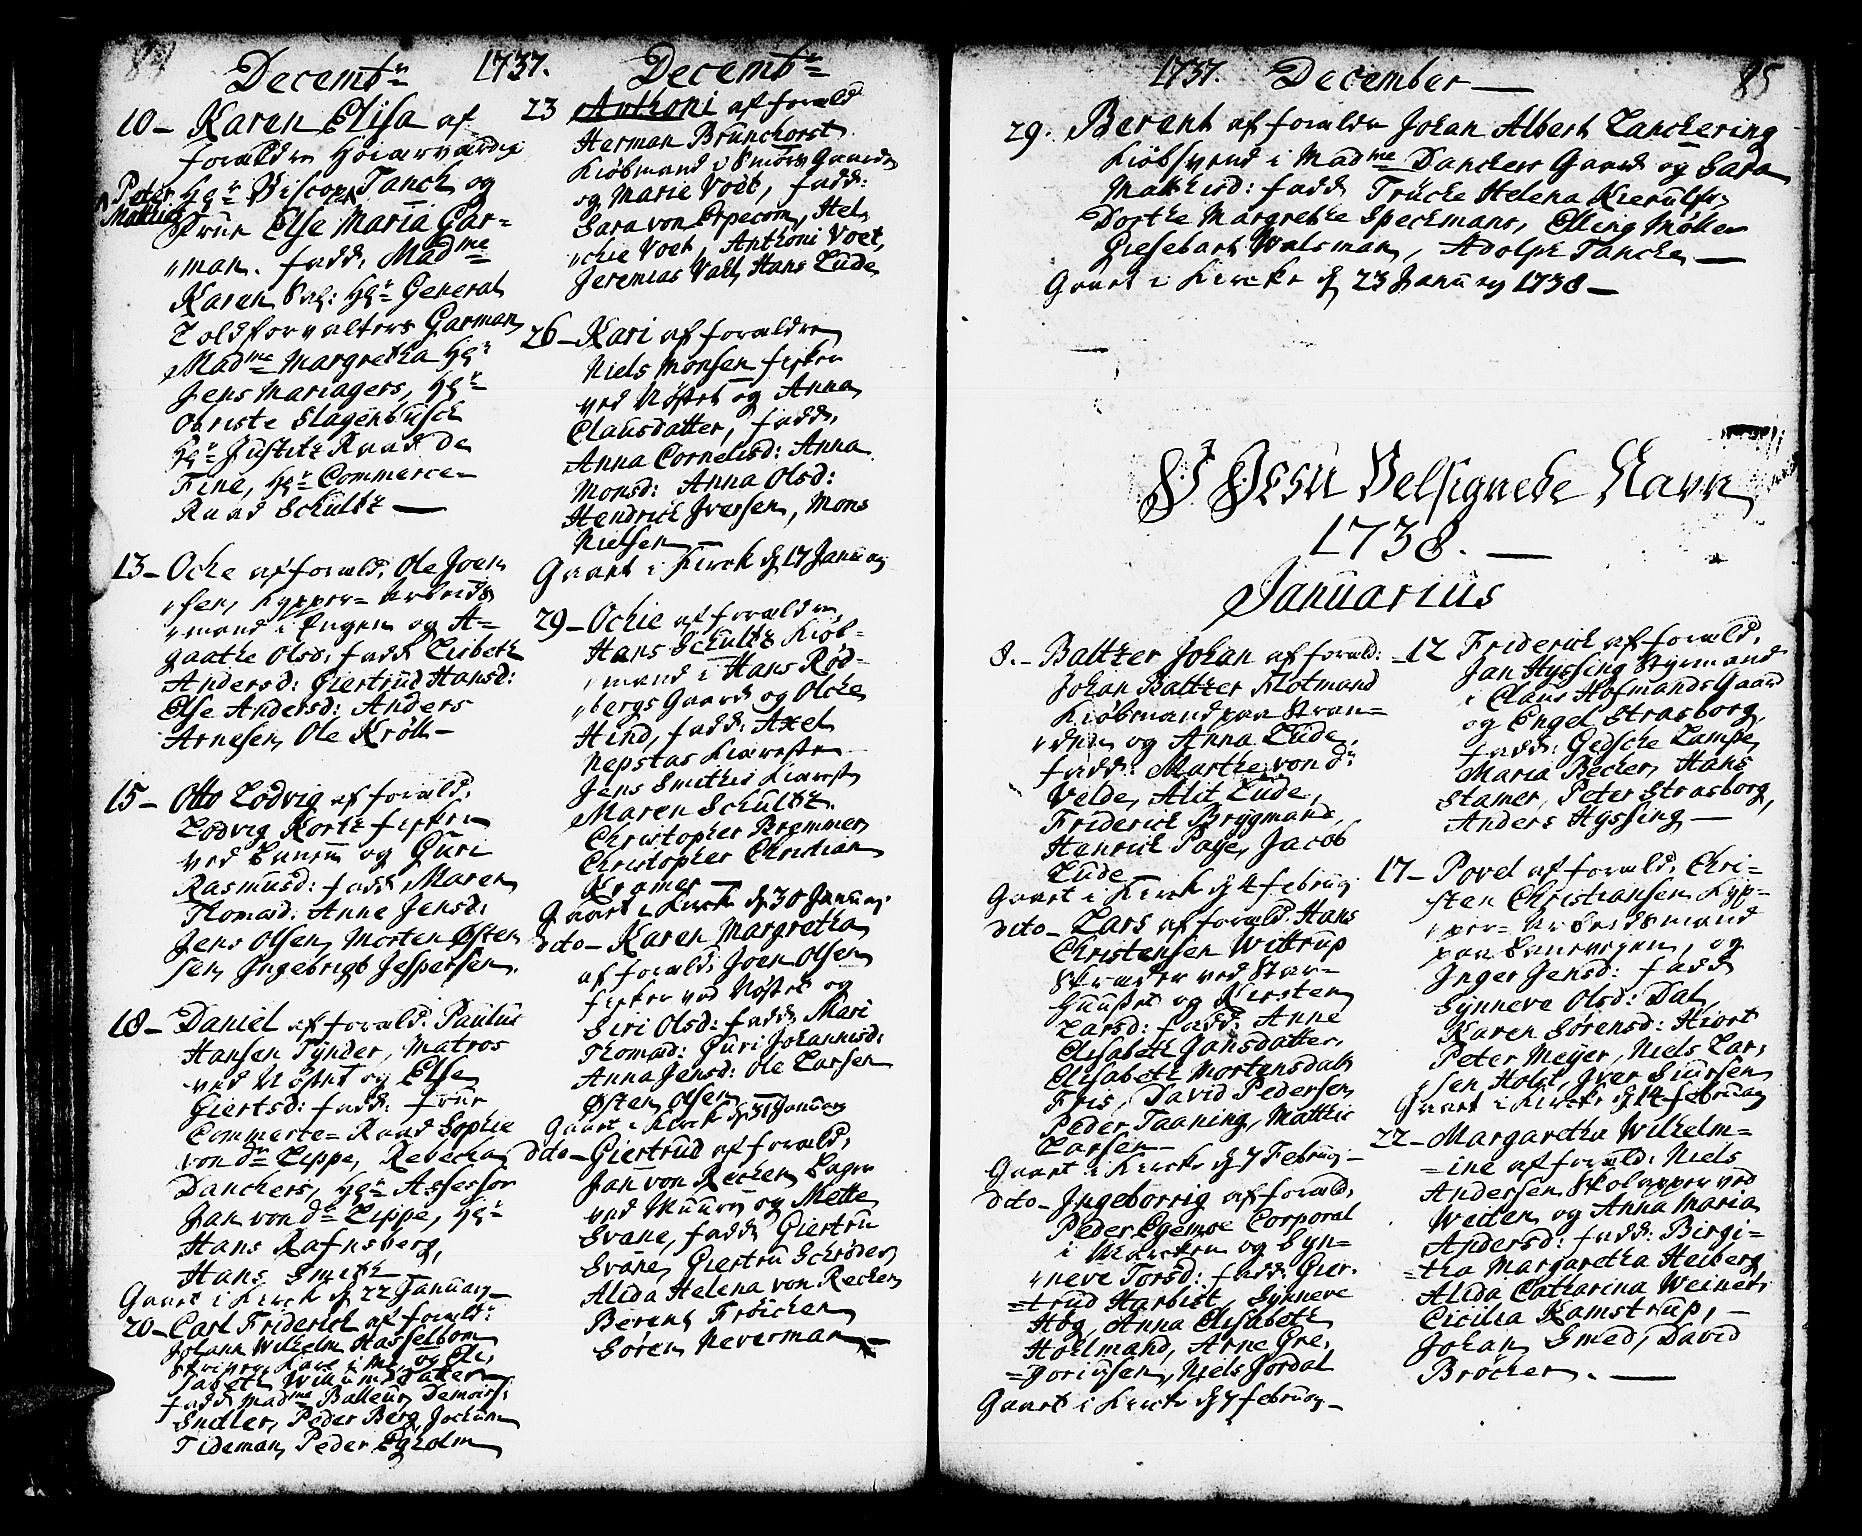 84
Decembr 1737.
10 - Karen Elisa af
foræld
Peter Hr Biscop Tanch og
Mathias
Frue Else Maria Gar=
man. fadd: Madme
Karen Hr General
Toldforvalters Garman
Madme Margretha Hr
Jens Mariagers, Hr
Obriste Stagenbusch
Hr Justitz Raad De
Fine, Hr Commerce=
Raad Schultz
13 - Ocke af foræld: Ole Joen
sen, Arbeids
mand i Engen og A=
gaathe Olsd: fadd Lisbeth
Andersd: Giertrud Hansd:
Else Andersd: Anders
Arnesen, Ole Kröll
15 - Otto Lodvig af foræld:
Lodvig Kortz fisker
ved og Guri
Rasmusd: fadd: Maren
Thomasd: Anne Jensd:
Jens Olsen, Morten Østen
sen, Ingebrigt Jespersen.
18 - Daniel af foræld: Paulus
Hansen Tÿnder, Matros
ved Nøstet og Else
Giertsd: fadd: frue
Commerce=Raad Sophie
von dr Lippe, Rebecha
Danckers, Hr Assessor
Jan von dr Lippe, Hr
Hans Rafnsberg,
Hans Smith
Gaaet i Kircke d 22 January
20 - Carl Friderich af foræld:
Johann Wilhelm Hasselbom
og Eli,
sabeth
fadd Madme Balleur,
Sneller, Peder Berg, Jochum
Tideman, Peder Egholm
Decembr
23 Anthoni af foræld
Herman Brunchorst
Kiøbmand i Gaarden
og Marie Voet, fadd:
Sara von Erpecom, Hel,
chie Voet, Anthoni Voet,
Jeremias Vall, Hans Lude
26 - Kari af forældre
Niels Monsen fisker
ved Nøstet og Anna
Clausdatter, fadd:
Anna Cornelisd: Anna
Monsd: Anna Olsd:
Hendrich Iversen, Mons
Nielsen
Gaaet i Kirck d 17 January
29 - Ochie af forældre
Hans Schultz Kiøb=
mand i Hans Rød=
bergs Gaard og Olche
Hind, fadd: Axel
Nepstas Kiæreste
Jens Smithes Kiærest
Maren Schultz.
Christopher Bremmer
Christopher Christian
Kramer
Gaaet i Kircke d 30 January
dito - Karen Margretha
af foræld: Joen Olsen
fisker ved Nøstet og
Siri Olsd: fadd: Mari
Thomasd: Guri Johannesd:
Anna Jensd: Ole Larsen
Østen Olsen
Gaaet i Kirck d 31 January
dito - Giertrud af foræld:
Jan von Recken, Bager
ved Muuren og Mette
Svane, fadd: Giertru
Svane, Giertru Schrøder
Alida Helena von Recken
Berent Fröchen
Søren Neverman
1737. December 85
29. Berent af foræld Johan Albert Lanckering
Kiøbsvend i Madme Danckers Gaard og Sara
Mathisd: fadd Trücke Helena Kierulf
Dorthe Margrethe Speckmans, Elling Møller
Giesebart Walsman, Adolph Tancke
Gaaet i Kircke d 23 January 1738
I Jesu Velsignede Navn
1738.
Januarius
8. - Baltzer Johan af foræld:
Johan Baltzer Flotmand
Kiøbmand paa Stran=
den og Anna Lüde,
fadd: Marthe von dr
Velde, Alit Lüde,
Friderich Brygmand,
Hanrich Paÿe, Jacob
Lüde
Gaaet i Kirck d 4 februay
dito - Lars af foræld: Hans
Christensen Wittrup
ved Star=
huuset og Kirsten
Larsd: fadd: Anne
Elisabeth Jansdatter,
Elisabeth Mortensdatt
Friis, David Pedersen
Peder Taaning, Matthi
Larsen
Gaaet i Kircke d 7 Februay
dito - Ingeborrig af foræld:
Peder Egemoe Corporal
i og Syn=
neve Torsd: fadd: Gier-
trud Harbist, Synneve
Høg, Anna Elisabeth
Hollmand, Arne Gre,
=goriusen, Niels Jordal
Gaaet i Kircke d 7 februay
12 Friderich af foræld:
Jan Hyssing Styrmand
i Claus Hofmands Gaard
og Engel Strasborg,
fadd: Gedsche Lampe,
Maria Becker, Hans
Stamer, Peter Strasborg,
Anders Hyssing
17 - Povel af foræld: Chri=
sten Christiansen Kyp=
per=Arbeidsmand
paa , og
Inger Jensd: fadd
Synneve Olsd: Dal,
Karen Sørensd: Hiort
Peter Meyer, Niels Lar,
sen Holst, Iver Siursen
Gaaet i Kircke d 14 februay
22 - Margaretha Wilhelm=
=ine af foræld: Niels
Andersen Skolapper ved
Weiten og Anna Maria
Andersd: fadd: Birgi=
=tha Margaretha Heiberg
Alida Catharina Weiner,
Cicilia Ramstrup,
Johan Smed, David
Brøcker.